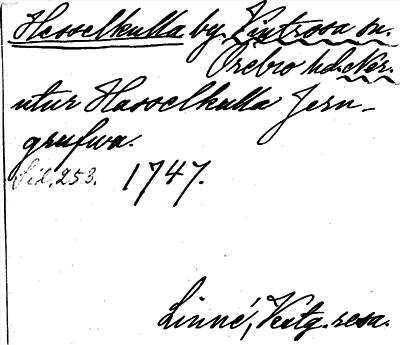 Hesselkulla by. Vintrosa sn.
Örebro hd. Ner.
utur Hasselkulla Jern-
grufwa.
Sid. 253. 1747.
Linné, Vestg. resa.